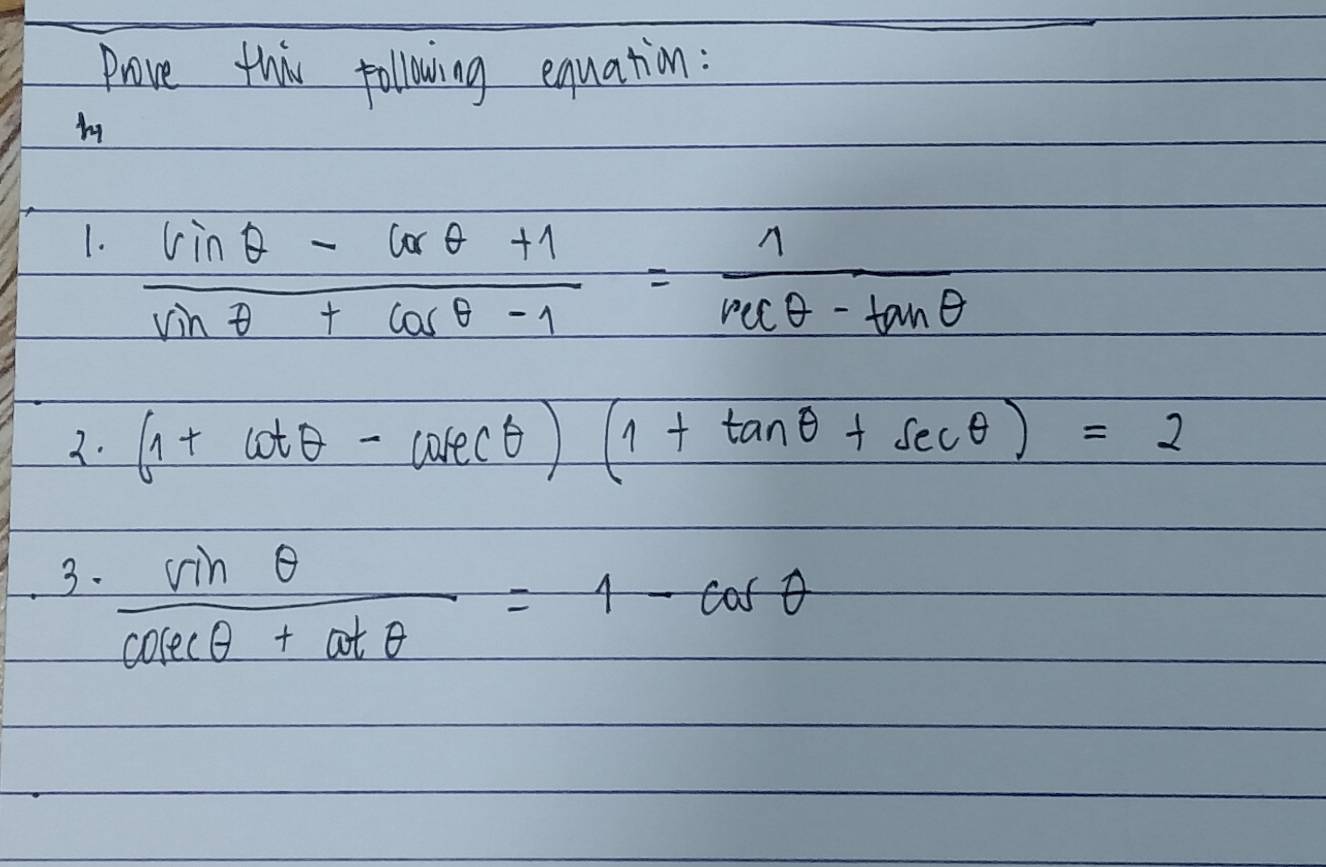 Prove this following equation:
1. sin θ - cos θ + 1 / sin θ + cos θ - 1 = 1 / sec θ - tan θ
2. (1 + cot θ - cosec θ) (1 + tan θ + sec θ) = 2
3. sin θ / cosec θ + cot θ = 1 - cos θ